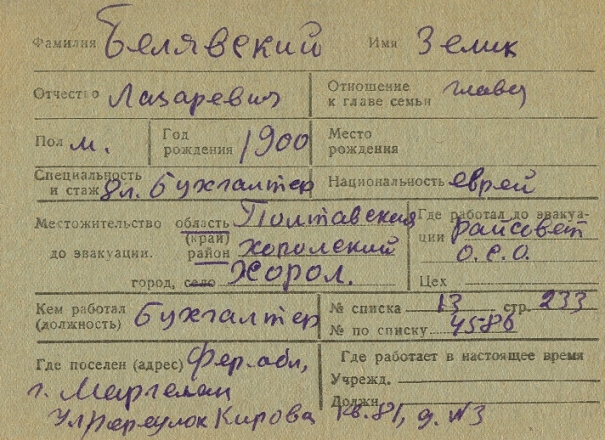 Фамилия Белявский Имя Зелик
Отчество Лазаревич Отношение к главе семьи глава
Пол м. Год рождения 1900 Место рождения
Специальность и стаж Бухгалтер Национальность еврей
Местожительство область Полтавская Где работал до эвакуа-
(край)
до эвакуации. район Хорольский ции райсовет
О.С.О.
город, село Хорол. Цех
Кем работал (должность) Бухгалтер № списка 13 стр. 233
№ по списку 4586
Где поселен (адрес) Фер. обл, Где работает в настоящее время
г. Маргелан Учрежд.
Должн.
Кирова кв. 81, д. №3